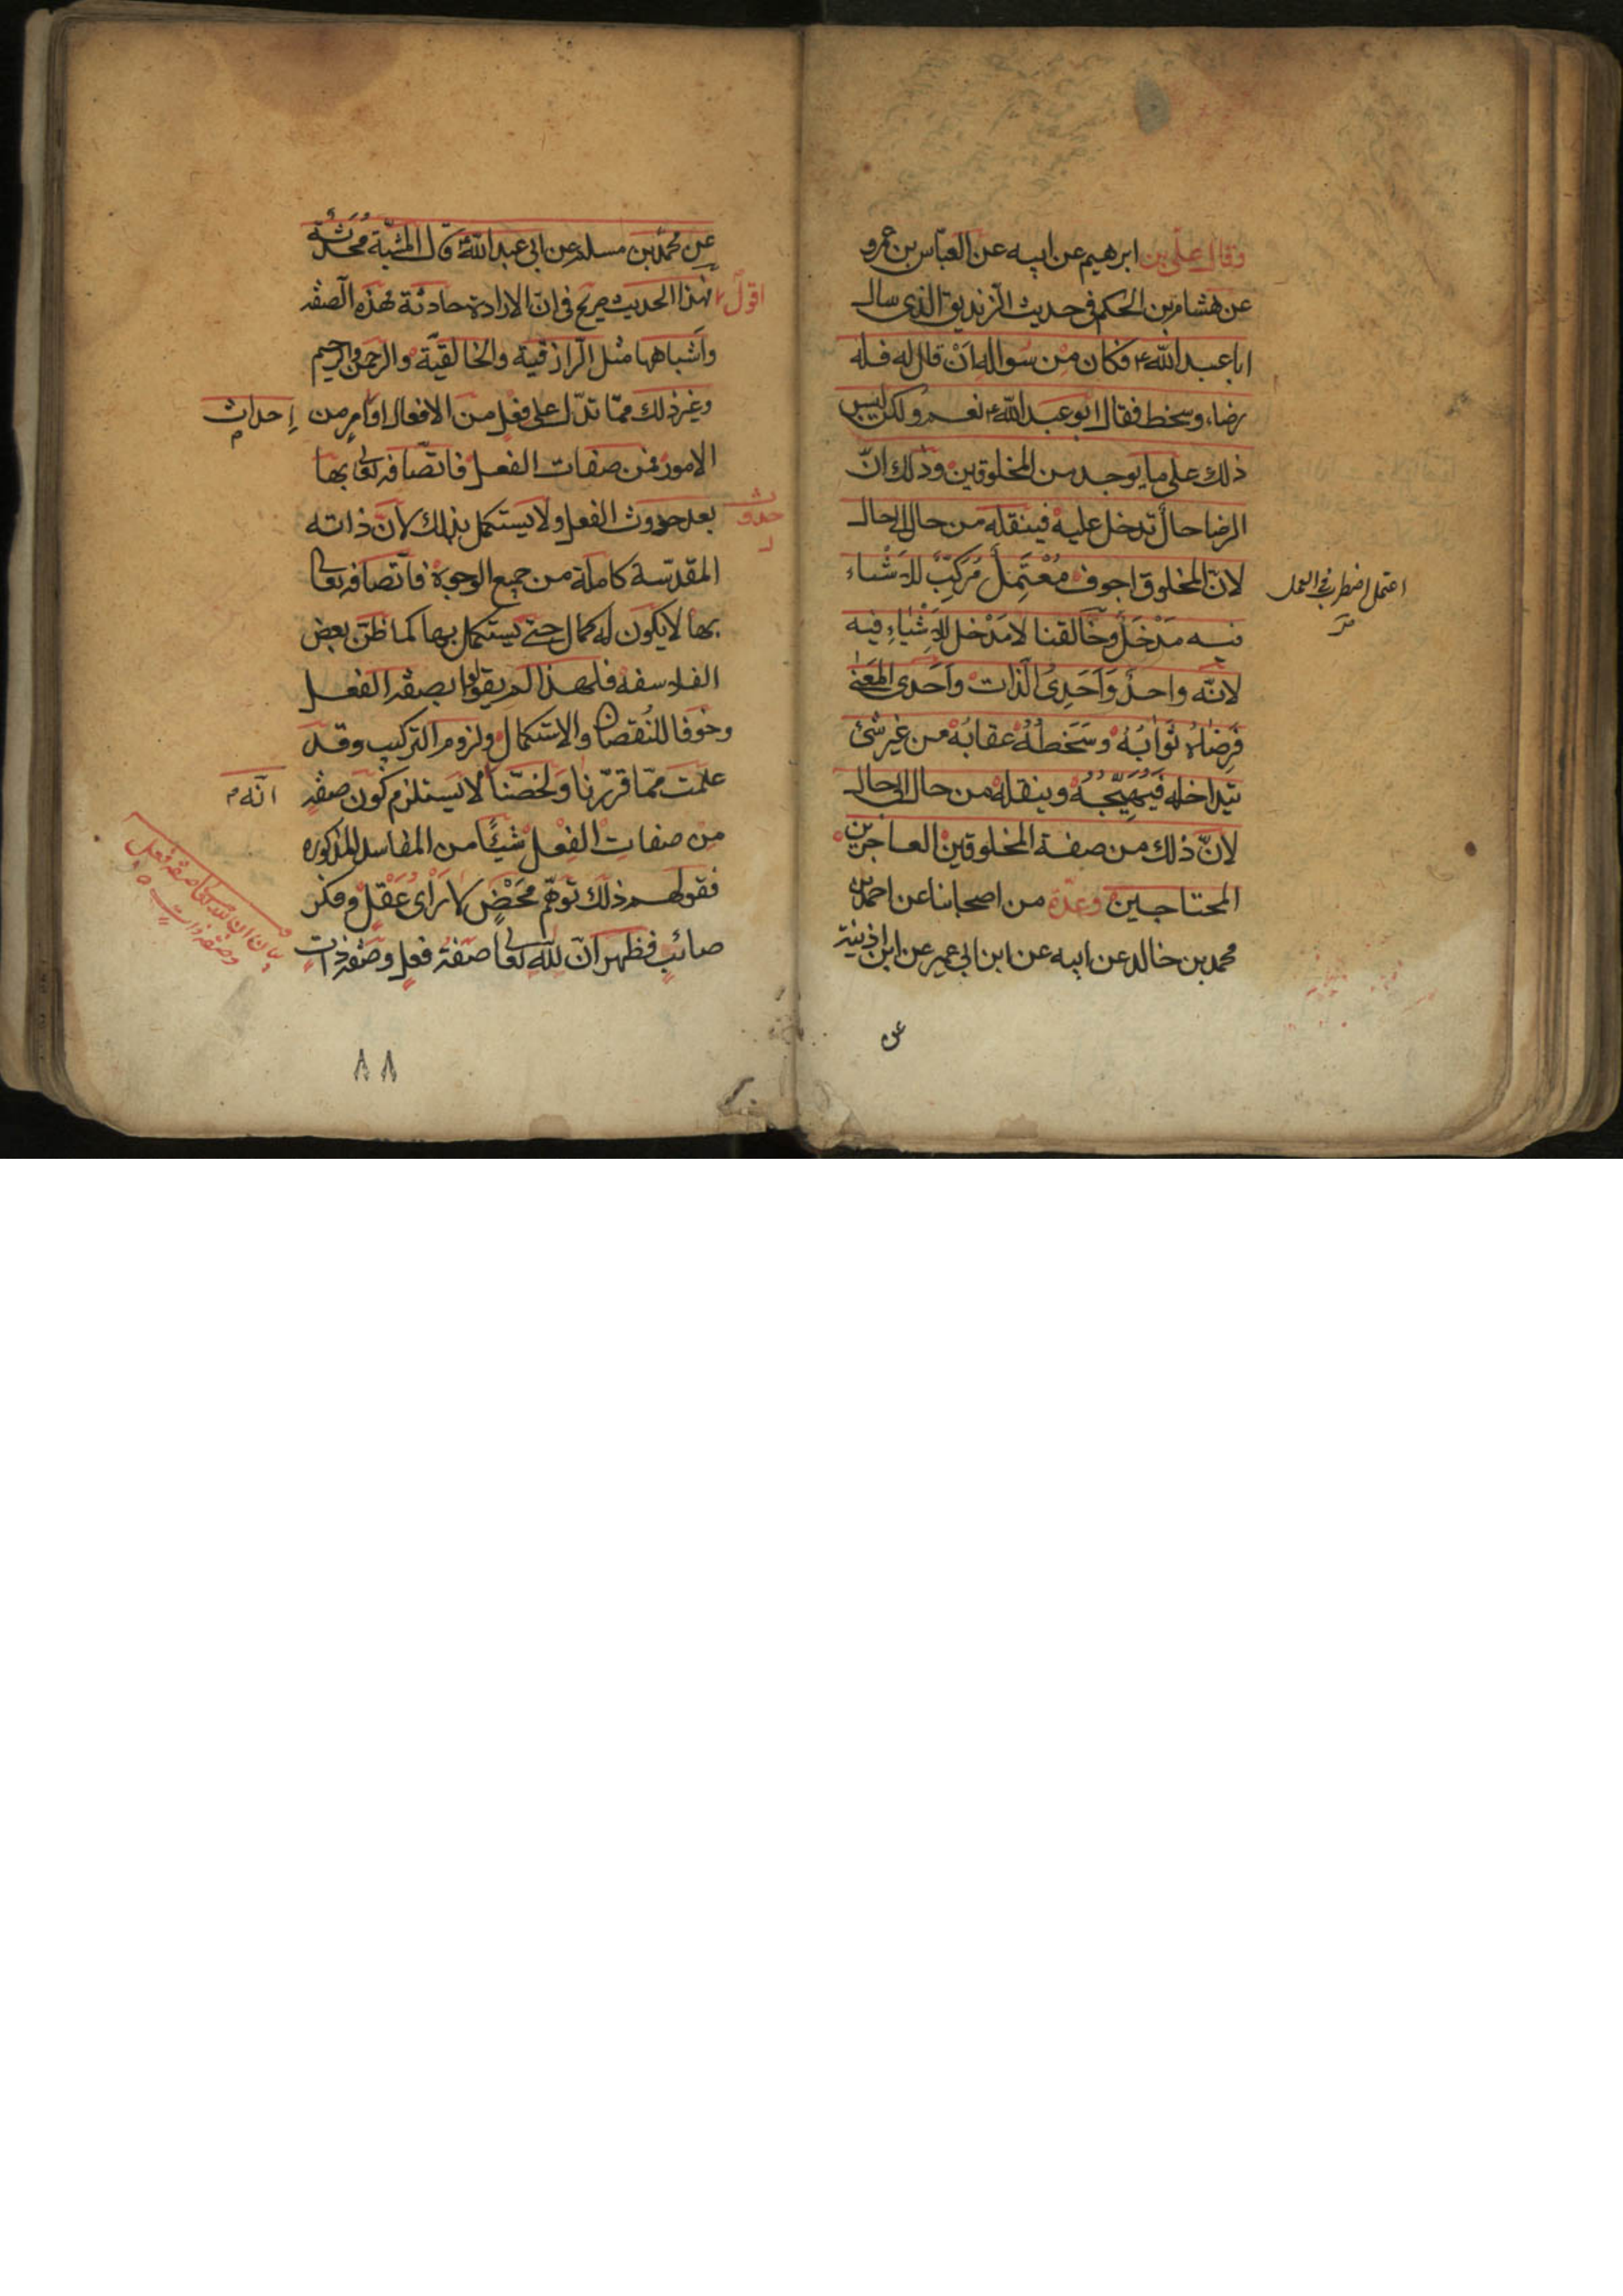 وقال علي بن ابرهيم عن ابيه عن العباس بن عمرو
عن هشام بن الحكم في حديث الزنديق الذي سال
ابا عبد الله ع فكان من سواله اَنْ قال له فله
رضاء وسخط فقال ابو عبد الله ع نعم ولكن ليس
ذلك على ما يوجد من المخلوقين وذلك انّ
الرضا حالٌ تدخل عليه فينقله من حال الى حال
لانّ المخلوق اجوف مُعْتَمِلٌ مُركّبٌ للاَشْياء
فيه مَدْخَلٌ وخالقنا لا مَدْخل للاَشْياءِ فيه
لانّه واحدٌ وَاَحَدِىُ الذّات واَحَدى المَعنىٰ
فَرِضٰاهُ ثوَابُهُ وسَخَطُهُ عقابُهُ من غير شئ
يتداخله فَيُهَيِّجُهُ وينقله من حال الى حال
لانّ ذلك من صفة المخلوقين العاجزين
المحتاجين وعدّة من اصحابنا عن احمد بن
محمد بن خالد عن ابيه عن ابن ابي عمير عن ابن اذينة
عن
اعتمل اضطرب في العمل
عن محمد بن مسلم عن ابي عبد الله ع قال المشيّة مُحْدَثَة
اقول فهذا الحديث صريح في انّ الارادة حادثة فهذه الصفة
واَشباهها مثل الرازقية والخالقيّة والرحمن والرحيم
وغير ذلك ممّا تدّل على فعلٍ من الافعال او اَمرٍ من اِحداث
الامور فمن صفات الفعل فاتّصافه تعالى بها
بعد حدوث الفعل ولا يستكمل بذلك لانّ ذاته
حدوث
المقدسة كاملة من جميع الوجوه فاتّصافه تعالى
بها لا يكون له كمال حتى يستكمل بها كما ظنّ بعض
الفلاسفه فلهذا لم يقولوا بصفة الفعل
وخوفا للنُقصان والاستكمال ولزوم التركيب وقد
علمت ممّا قرّرنا ولخصّنا انّه لا يستلزم كون صفةٍ
من صفاتِ الفِعْل شيئًا من المفاسد المذكوره
فقولهم ذلك توهّم مَحْضٌ لا رَأىُ عَقْلٍ وفكر
صائبٍ فظهر انّ لله تعالى صفة فعلٍ وصفة ذاتٍ
بيان ان لله تعالى صفة فعل
وصفة ذات
٨٨